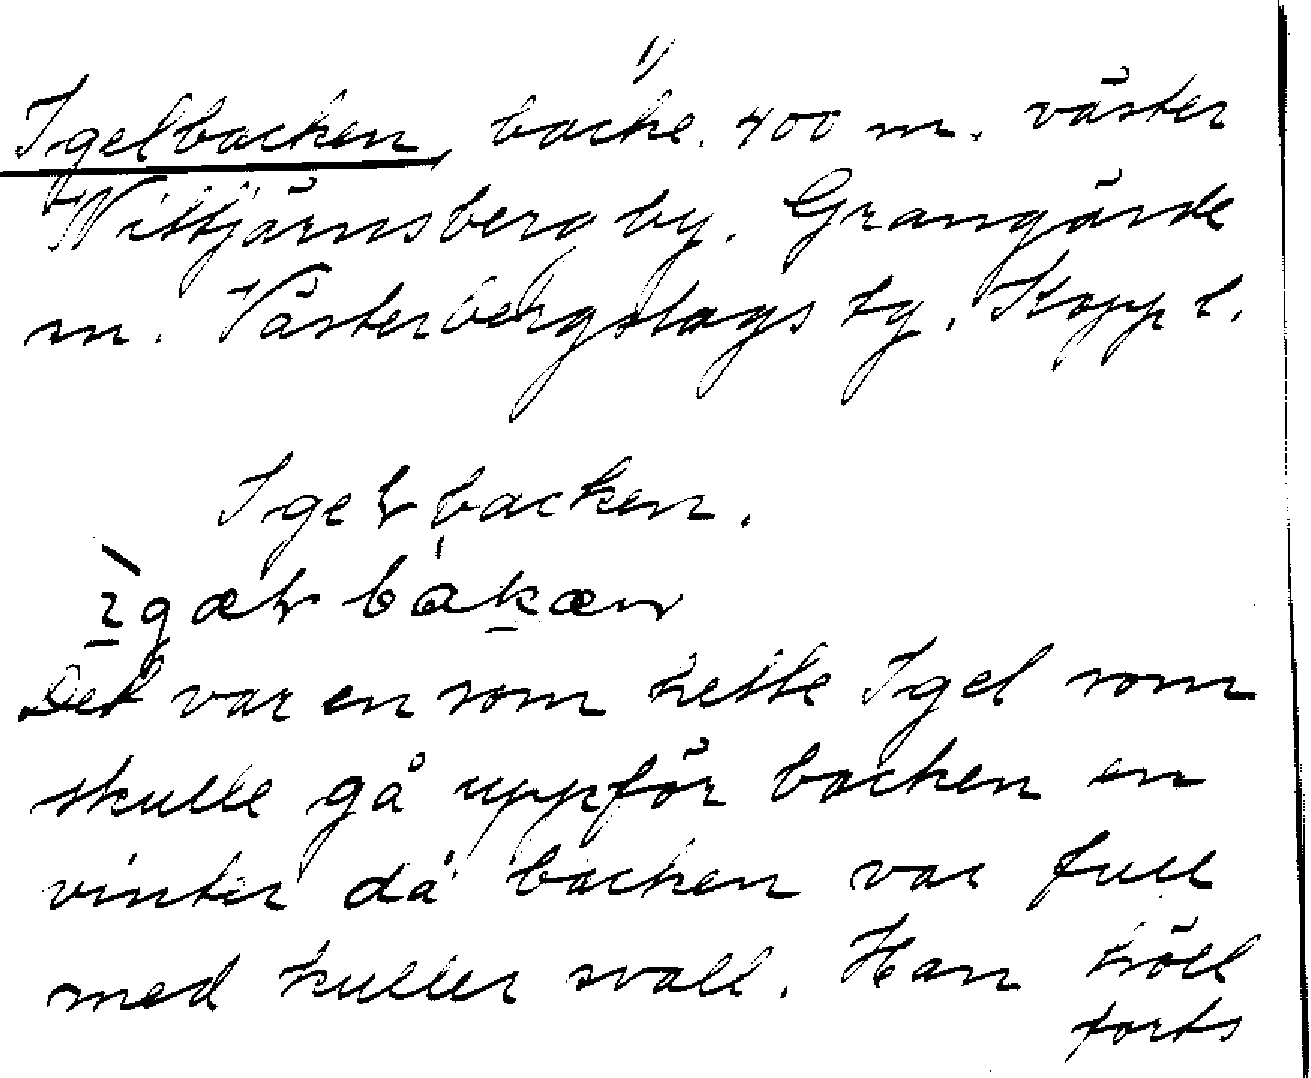 1)
Igelbacken, backe. 400 m. väster
Wittjärnsberg by. Grangärde
m. Västerbergslags tg. Kopp l.
Igelbacken.
ìgæɫbakæn
Det var en som hette Igel som
skulle gå uppför backen en
vinter då backen var full
med kuller svall. Han höll
forts